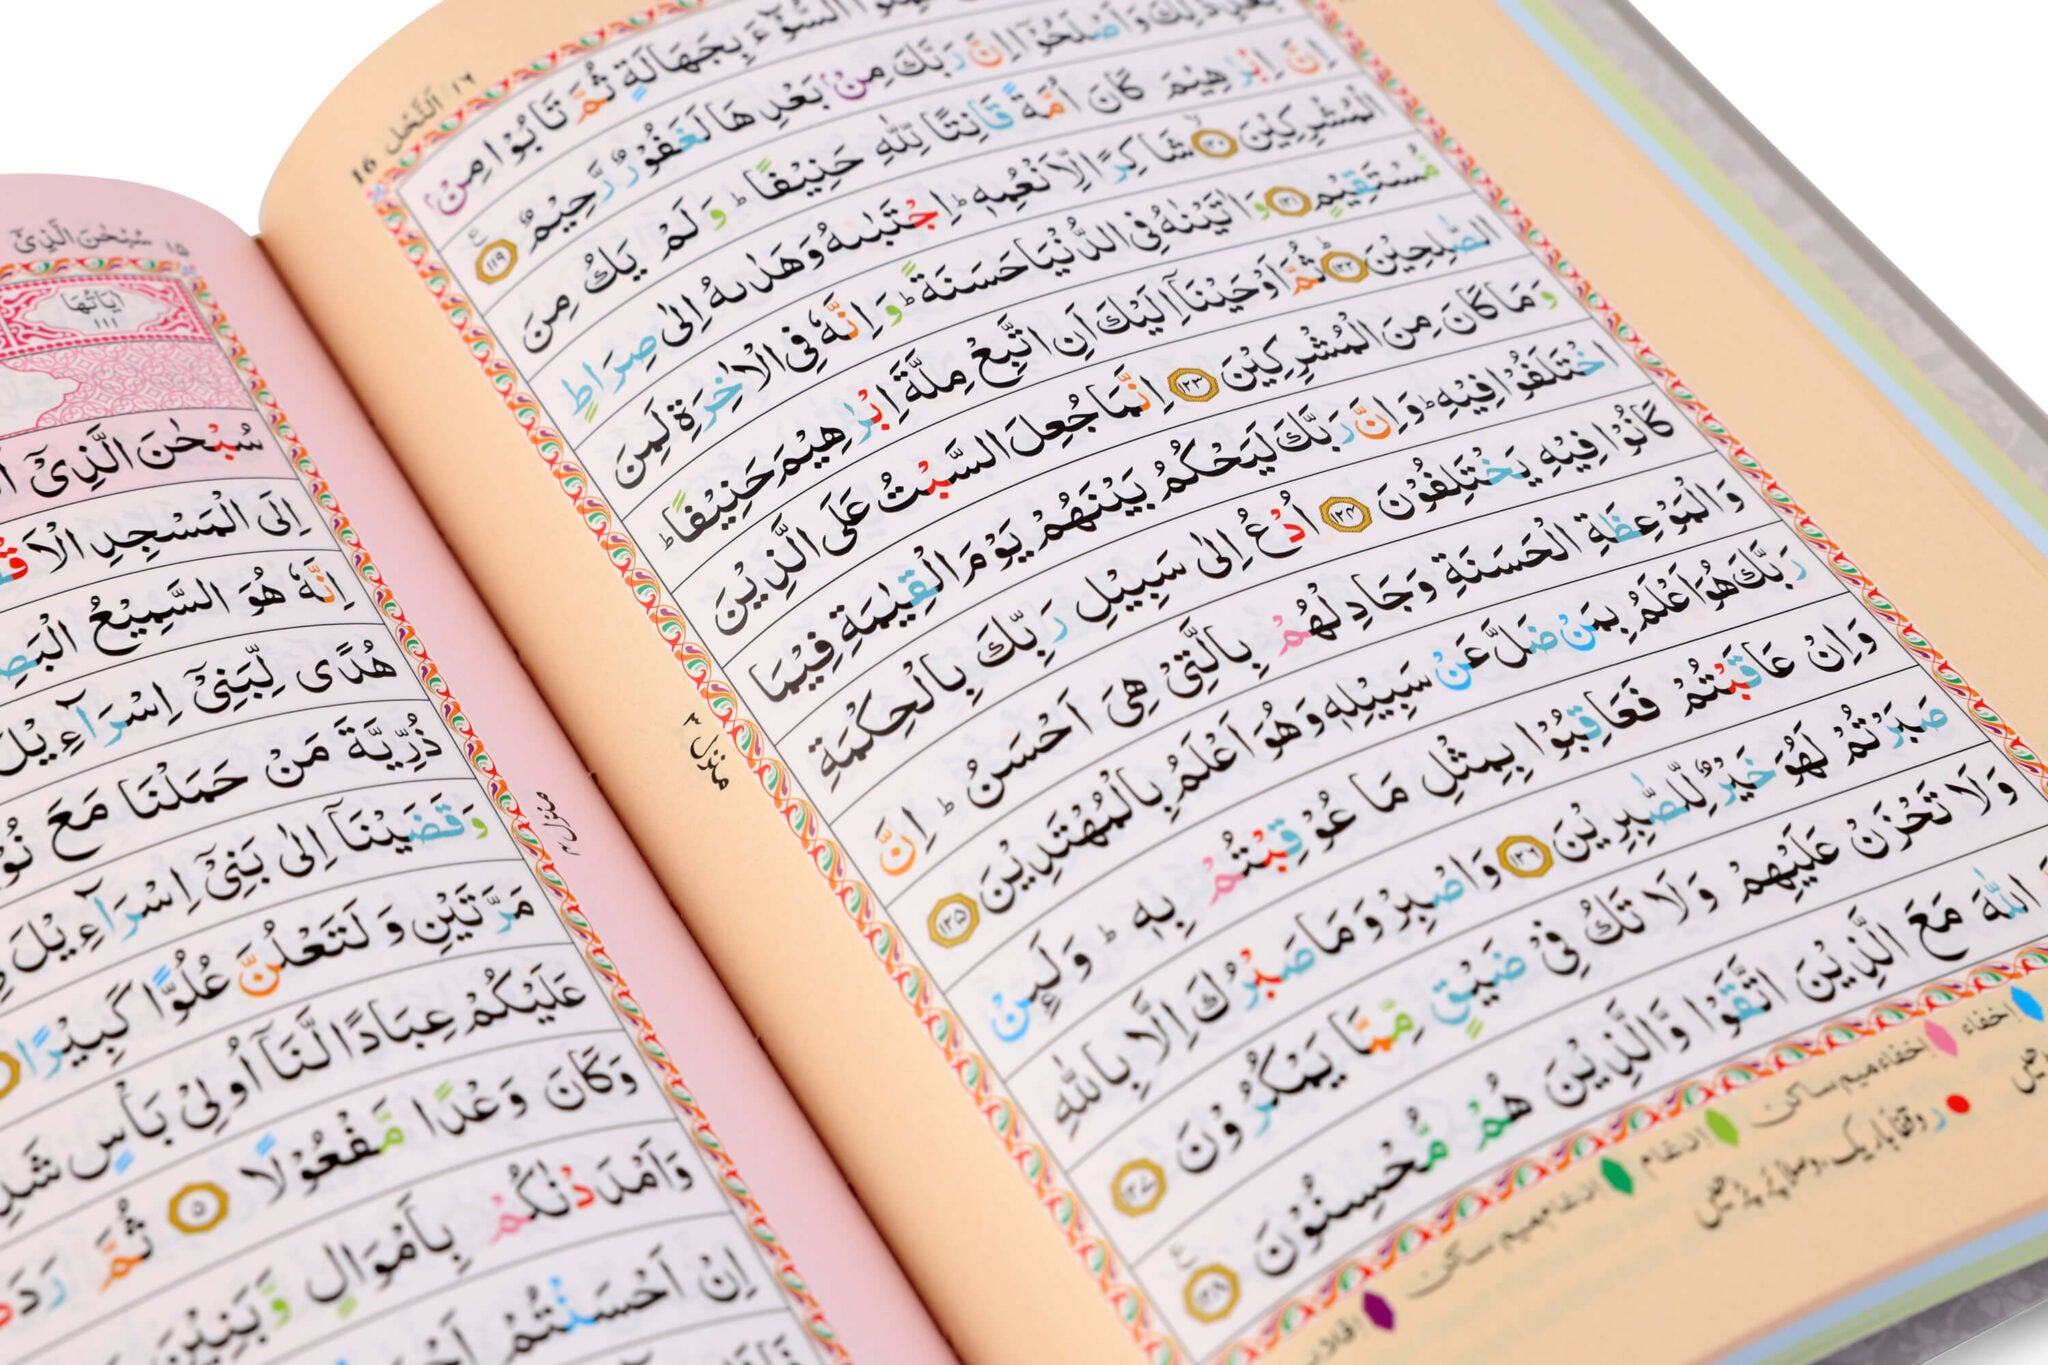 النَّحْل ١٦
16
السُّوْٓءَ بِجَهَالَةٍ ثُمَّ تَابُوْا مِنْۢ
بَعْدِ ذٰلِكَ وَاَصْلَحُوْۤا اِنَّ رَبَّكَ مِنْۢ بَعْدِهَا لَغَفُوْرٌ رَّحِيْمٌ ۝١١٩
اِنَّ اِبْرٰهِيْمَ كَانَ اُمَّةً قَانِتًا لِّلّٰهِ حَنِيْفًا ؕ وَلَمْ يَكُ مِنَ
الْمُشْرِكِيْنَ ۝١٢٠ شَاكِرًا لِّاَنْعُمِهٖ ؕ اِجْتَبٰىهُ وَهَدٰىهُ اِلٰى صِرَاطٍ
مُّسْتَقِيْمٍ ۝١٢١ وَاٰتَيْنٰهُ فِى الدُّنْيَا حَسَنَةً ؕ وَاِنَّهٗ فِى الْاٰخِرَةِ لَمِنَ
الصّٰلِحِيْنَ ۝١٢٢ ثُمَّ اَوْحَيْنَاۤ اِلَيْكَ اَنِ اتَّبِعْ مِلَّةَ اِبْرٰهِيْمَ حَنِيْفًا ؕ
وَمَا كَانَ مِنَ الْمُشْرِكِيْنَ ۝١٢٣ اِنَّمَا جُعِلَ السَّبْتُ عَلَى الَّذِيْنَ
اخْتَلَفُوْا فِيْهِ ؕ وَاِنَّ رَبَّكَ لَيَحْكُمُ بَيْنَهُمْ يَوْمَ الْقِيٰمَةِ فِيْمَا
كَانُوْا فِيْهِ يَخْتَلِفُوْنَ ۝١٢٤ اُدْعُ اِلٰى سَبِيْلِ رَبِّكَ بِالْحِكْمَةِ
وَالْمَوْعِظَةِ الْحَسَنَةِ وَجَادِلْهُمْ بِالَّتِيْ هِيَ اَحْسَنُ ؕ اِنَّ
رَبَّكَ هُوَ اَعْلَمُ بِمَنْ ضَلَّ عَنْ سَبِيْلِهٖ وَهُوَ اَعْلَمُ بِالْمُهْتَدِيْنَ ۝١٢٥
وَاِنْ عَاقَبْتُمْ فَعَاقِبُوْا بِمِثْلِ مَا عُوْقِبْتُمْ بِهٖ ؕ وَلَىِٕنْ
صَبَرْتُمْ لَهُوَ خَيْرٌ لِّلصّٰبِرِيْنَ ۝١٢٦ وَاصْبِرْ وَمَا صَبْرُكَ اِلَّا بِاللّٰهِ
وَلَا تَحْزَنْ عَلَيْهِمْ وَلَا تَكُ فِيْ ضَيْقٍ مِّمَّا يَمْكُرُوْنَ ۝١٢٧
اللّٰهَ مَعَ الَّذِيْنَ اتَّقَوْا وَّالَّذِيْنَ هُمْ مُّحْسِنُوْنَ ۝١٢٨
منزل ٣
اخفاء
اخفاء میم ساکن
ادغام
ادغام میم ساکن
سُبْحٰنَ الَّذِيْٓ ١٥
اٰيَاتُهَا
١١١
سُبْحٰنَ الَّذِيْٓ
اِلَى الْمَسْجِدِ
اِنَّهٗ هُوَ السَّمِيْعُ
هُدًى لِّبَنِيْٓ اِسْرَآءِيْلَ
ذُرِّيَّةَ مَنْ حَمَلْنَا مَعَ
وَقَضَيْنَاۤ اِلٰى بَنِيْٓ اِسْرَآءِيْلَ
مَرَّتَيْنِ وَلَتَعْلُنَّ عُلُوًّا كَبِيْرًا
عَلَيْكُمْ عِبَادًا لَّنَاۤ اُولِيْ بَاْسٍ
وَكَانَ وَعْدًا مَّفْعُوْلًا ۝٥ ثُمَّ
وَاَمْدَدْنٰكُمْ بِاَمْوَالٍ وَّبَنِيْنَ
اِنْ اَحْسَنْتُمْ
منزل